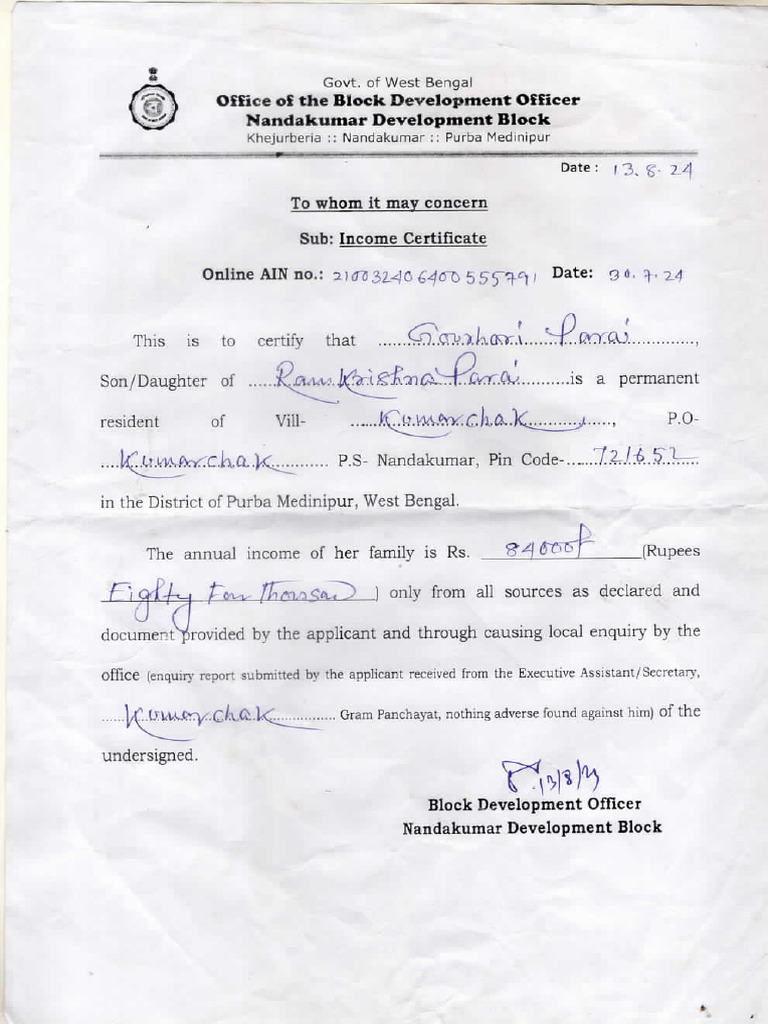 Govt. of West Bengal
Office of the Block Development Officer
Nandakumar Development Block
Khejurberia :: Nandakumar :: Purba Medinipur
Date : 13.8.24
To whom it may concern
Sub: Income Certificate
Online AIN no.: 210032406400555791 Date: 30.7.24
This is to certify that ......Gourhari Parai......,
Son/Daughter of .....Ramkrishna Parai..........is a permanent
resident of Vill- .....Kumarchak............, P.O-
....Kumarchak............ P.S- Nandakumar, Pin Code-......721652......
in the District of Purba Medinipur, West Bengal.
The annual income of her family is Rs. 84000/- (Rupees
Eighty Four Thousand ) only from all sources as declared and
document provided by the applicant and through causing local enquiry by the
office (enquiry report submitted by the applicant received from the Executive Assistant/Secretary,
......Kumarchak............ Gram Panchayat, nothing adverse found against him) of the
undersigned.
13/8/24
Block Development Officer
Nandakumar Development Block